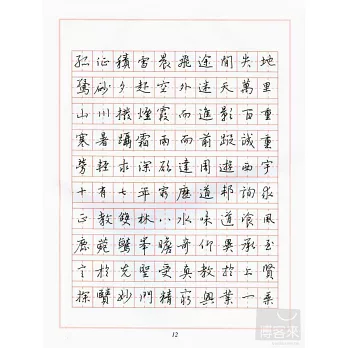 孤征積雪晨飛途間失地
驚砂夕起空外迷天萬里
山川撥煙霞而進影百重
寒暑躡霜雨而前蹤誠重
勞輕求深願達周遊西宇
十有七年窮歷道邦詢求
正教雙林八水味道飡風
鹿菀鷲峯瞻奇仰異承至
言於先聖受真教於上賢
探賾妙門精窮奧業一乘
12
博客來